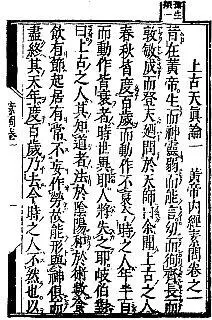 上古天真論 黃帝內經素問卷之一
昔在黃帝生而神靈弱而能言幼而徇齊長而
敦敏成而登天廼問於天師曰余聞上古之人
春秋皆度百歲而動作不衰今時之人年半百
而動作皆衰者時世異耶人將失之耶岐伯對
曰上古之人其知道者法於陰陽和於術數食
飲有節起居有常不妄作勞故能形與神俱而
盡終其天年度百歲乃去今時之人不然也以